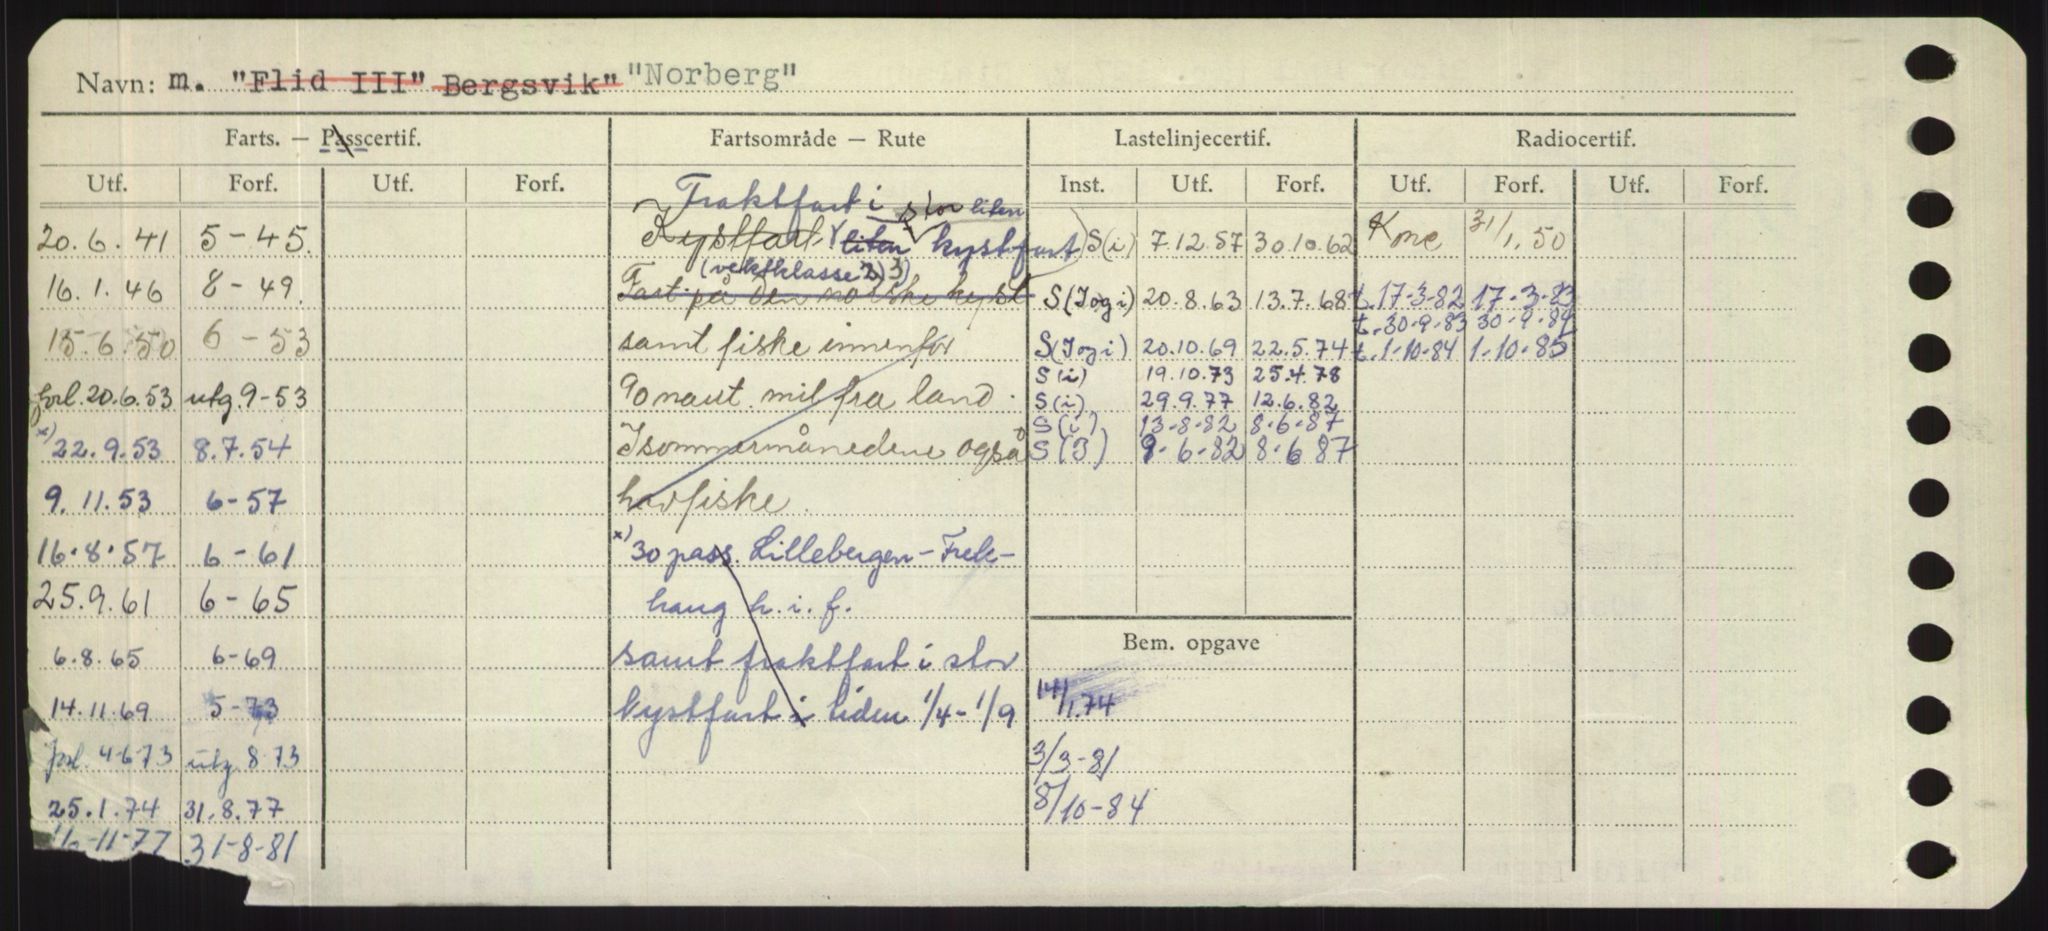 Navn: m. "Flid III" Bergsvik" "Norberg"
Farts. — Passcertif. Fartsområde — Rute Lastelinjecertif. Radiocertif.
Utf. Forf. Utf. Forf. Inst. Utf. Forf. Utf. Forf. Utf. Forf.
Fraktfart i stor liten
20.6.41 5-45. Kystfart liten kystfart S(i) 7.12.57 30.10.62 31/1.50
(vektklasse 2) 3)
16.1.46 8-49. Fart på den norske kyst S(Iogi) 20.8.63 13.7.68 t.17-3-82 17-3-83
t.30-9-83 30-9-84
15.6.50 6-53 samt fiske innenfor S(Iogi) 20.10.69 22.5.74 t.1-10-84 1-10-85
S(i) 19.10.73 25.4.78
forl. 20.6.53 utg. 9-53 90 naut. mil fra land. S(i) 29.9.77 12.6.82
S(i) 13-8-82 8-6-87
x) 22.9.53 8.7.54 I sommermånedene også S(I) 9-6-82 8-6 87
9.11.53 6-57 havfiske.
16.8.57 6-61 x) 30 pass. Lillebergen - Frek-
25.9.61 6-65 haug h.i.f.
6.8.65 6-69 samt fraktfart i stor Bem. opgave
14.11.69 5-73 kystfart i tiden 1/4-1/9 14/1.74
forl. 4-6-73 utg. 8.73 3/3-81
25.1.74 31.8.77 8/10-84
-11-77 31-8-81